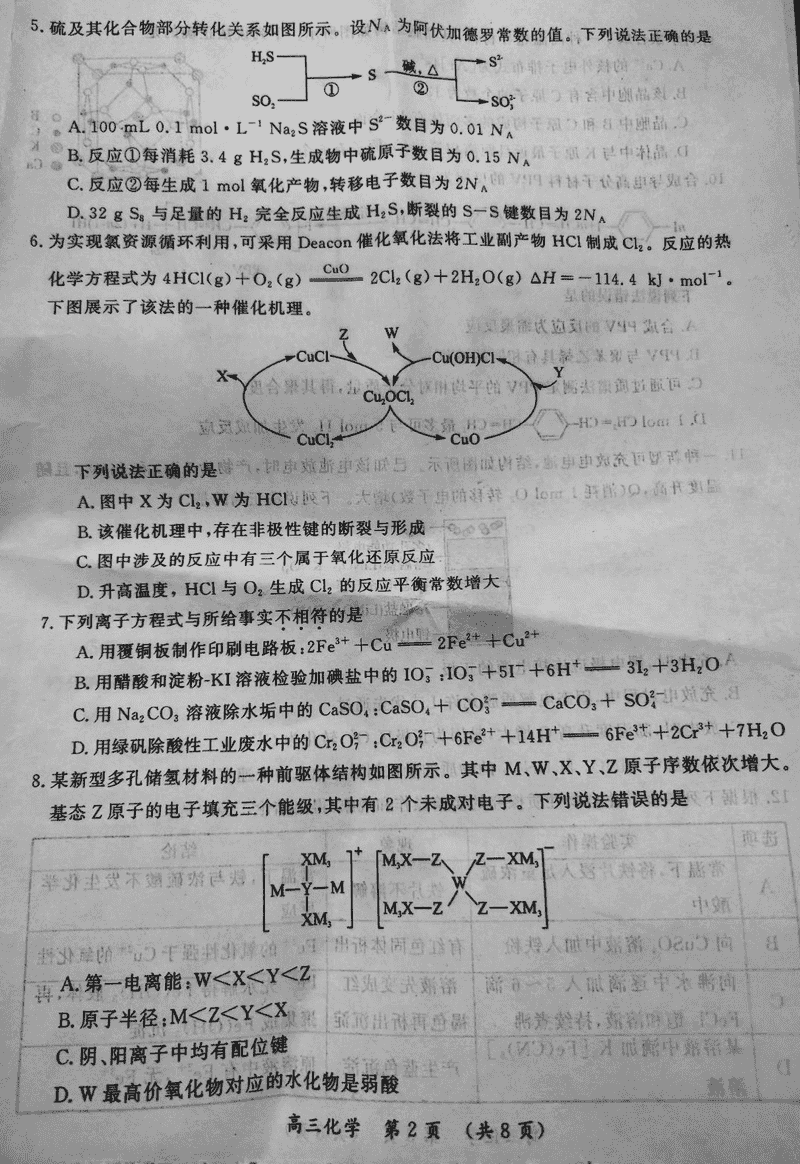 5. 硫及其化合物部分转化关系如图所示。设N_A 为阿伏加德罗常数的值。下列说法正确的是
H₂S
SO₂
①
S
碱,△
②
S²⁻
SO₃²⁻
A. 100 mL 0.1 mol·L⁻¹ Na₂S溶液中 S²⁻数目为 0.01 N_A
B. 反应①每消耗 3.4 g H₂S,生成物中硫原子数目为 0.15 N_A
C. 反应②每生成 1 mol 氧化产物,转移电子数目为 2N_A
D. 32 g S₈ 与足量的 H₂ 完全反应生成 H₂S,断裂的 S—S 键数目为 2N_A
6. 为实现氯资源循环利用,可采用 Deacon 催化氧化法将工业副产物 HCl 制成 Cl₂。反应的热
化学方程式为 4HCl(g)+O₂(g) ══CuO══ 2Cl₂(g)+2H₂O(g) ΔH=-114.4 kJ·mol⁻¹。
下图展示了该法的一种催化机理。
Z
W
CuCl
Cu(OH)Cl
X
Y
Cu₂OCl₂
CuCl₂
CuO
下列说法正确的是
A. 图中 X 为 Cl₂,W 为 HCl
B. 该催化机理中,存在非极性键的断裂与形成
C. 图中涉及的反应中有三个属于氧化还原反应
D. 升高温度，HCl 与 O₂ 生成 Cl₂ 的反应平衡常数增大
7. 下列离子方程式与所给事实不相符的是
A. 用覆铜板制作印刷电路板:2Fe³⁺+Cu══2Fe²⁺+Cu²⁺
B. 用醋酸和淀粉-KI 溶液检验加碘盐中的 IO₃⁻:IO₃⁻+5I⁻+6H⁺══3I₂+3H₂O
C. 用 Na₂CO₃ 溶液除水垢中的 CaSO₄:CaSO₄+CO₃²⁻══CaCO₃+SO₄²⁻
D. 用绿矾除酸性工业废水中的 Cr₂O₇²⁻:Cr₂O₇²⁻+6Fe²⁺+14H⁺══6Fe³⁺+2Cr³⁺+7H₂O
8. 某新型多孔储氢材料的一种前驱体结构如图所示。其中 M、W、X、Y、Z 原子序数依次增大。
基态 Z 原子的电子填充三个能级,其中有 2 个未成对电子。下列说法错误的是
XM₃ + M₃X—Z Z—XM₃ −
M—Y—M W
XM₃ M₃X—Z Z—XM₃
A. 第一电离能:W<X<Y<Z
B. 原子半径:M<Z<Y<X
C. 阴、阳离子中均有配位键
D. W 最高价氧化物对应的水化物是弱酸
高三化学 第2页 (共8页)